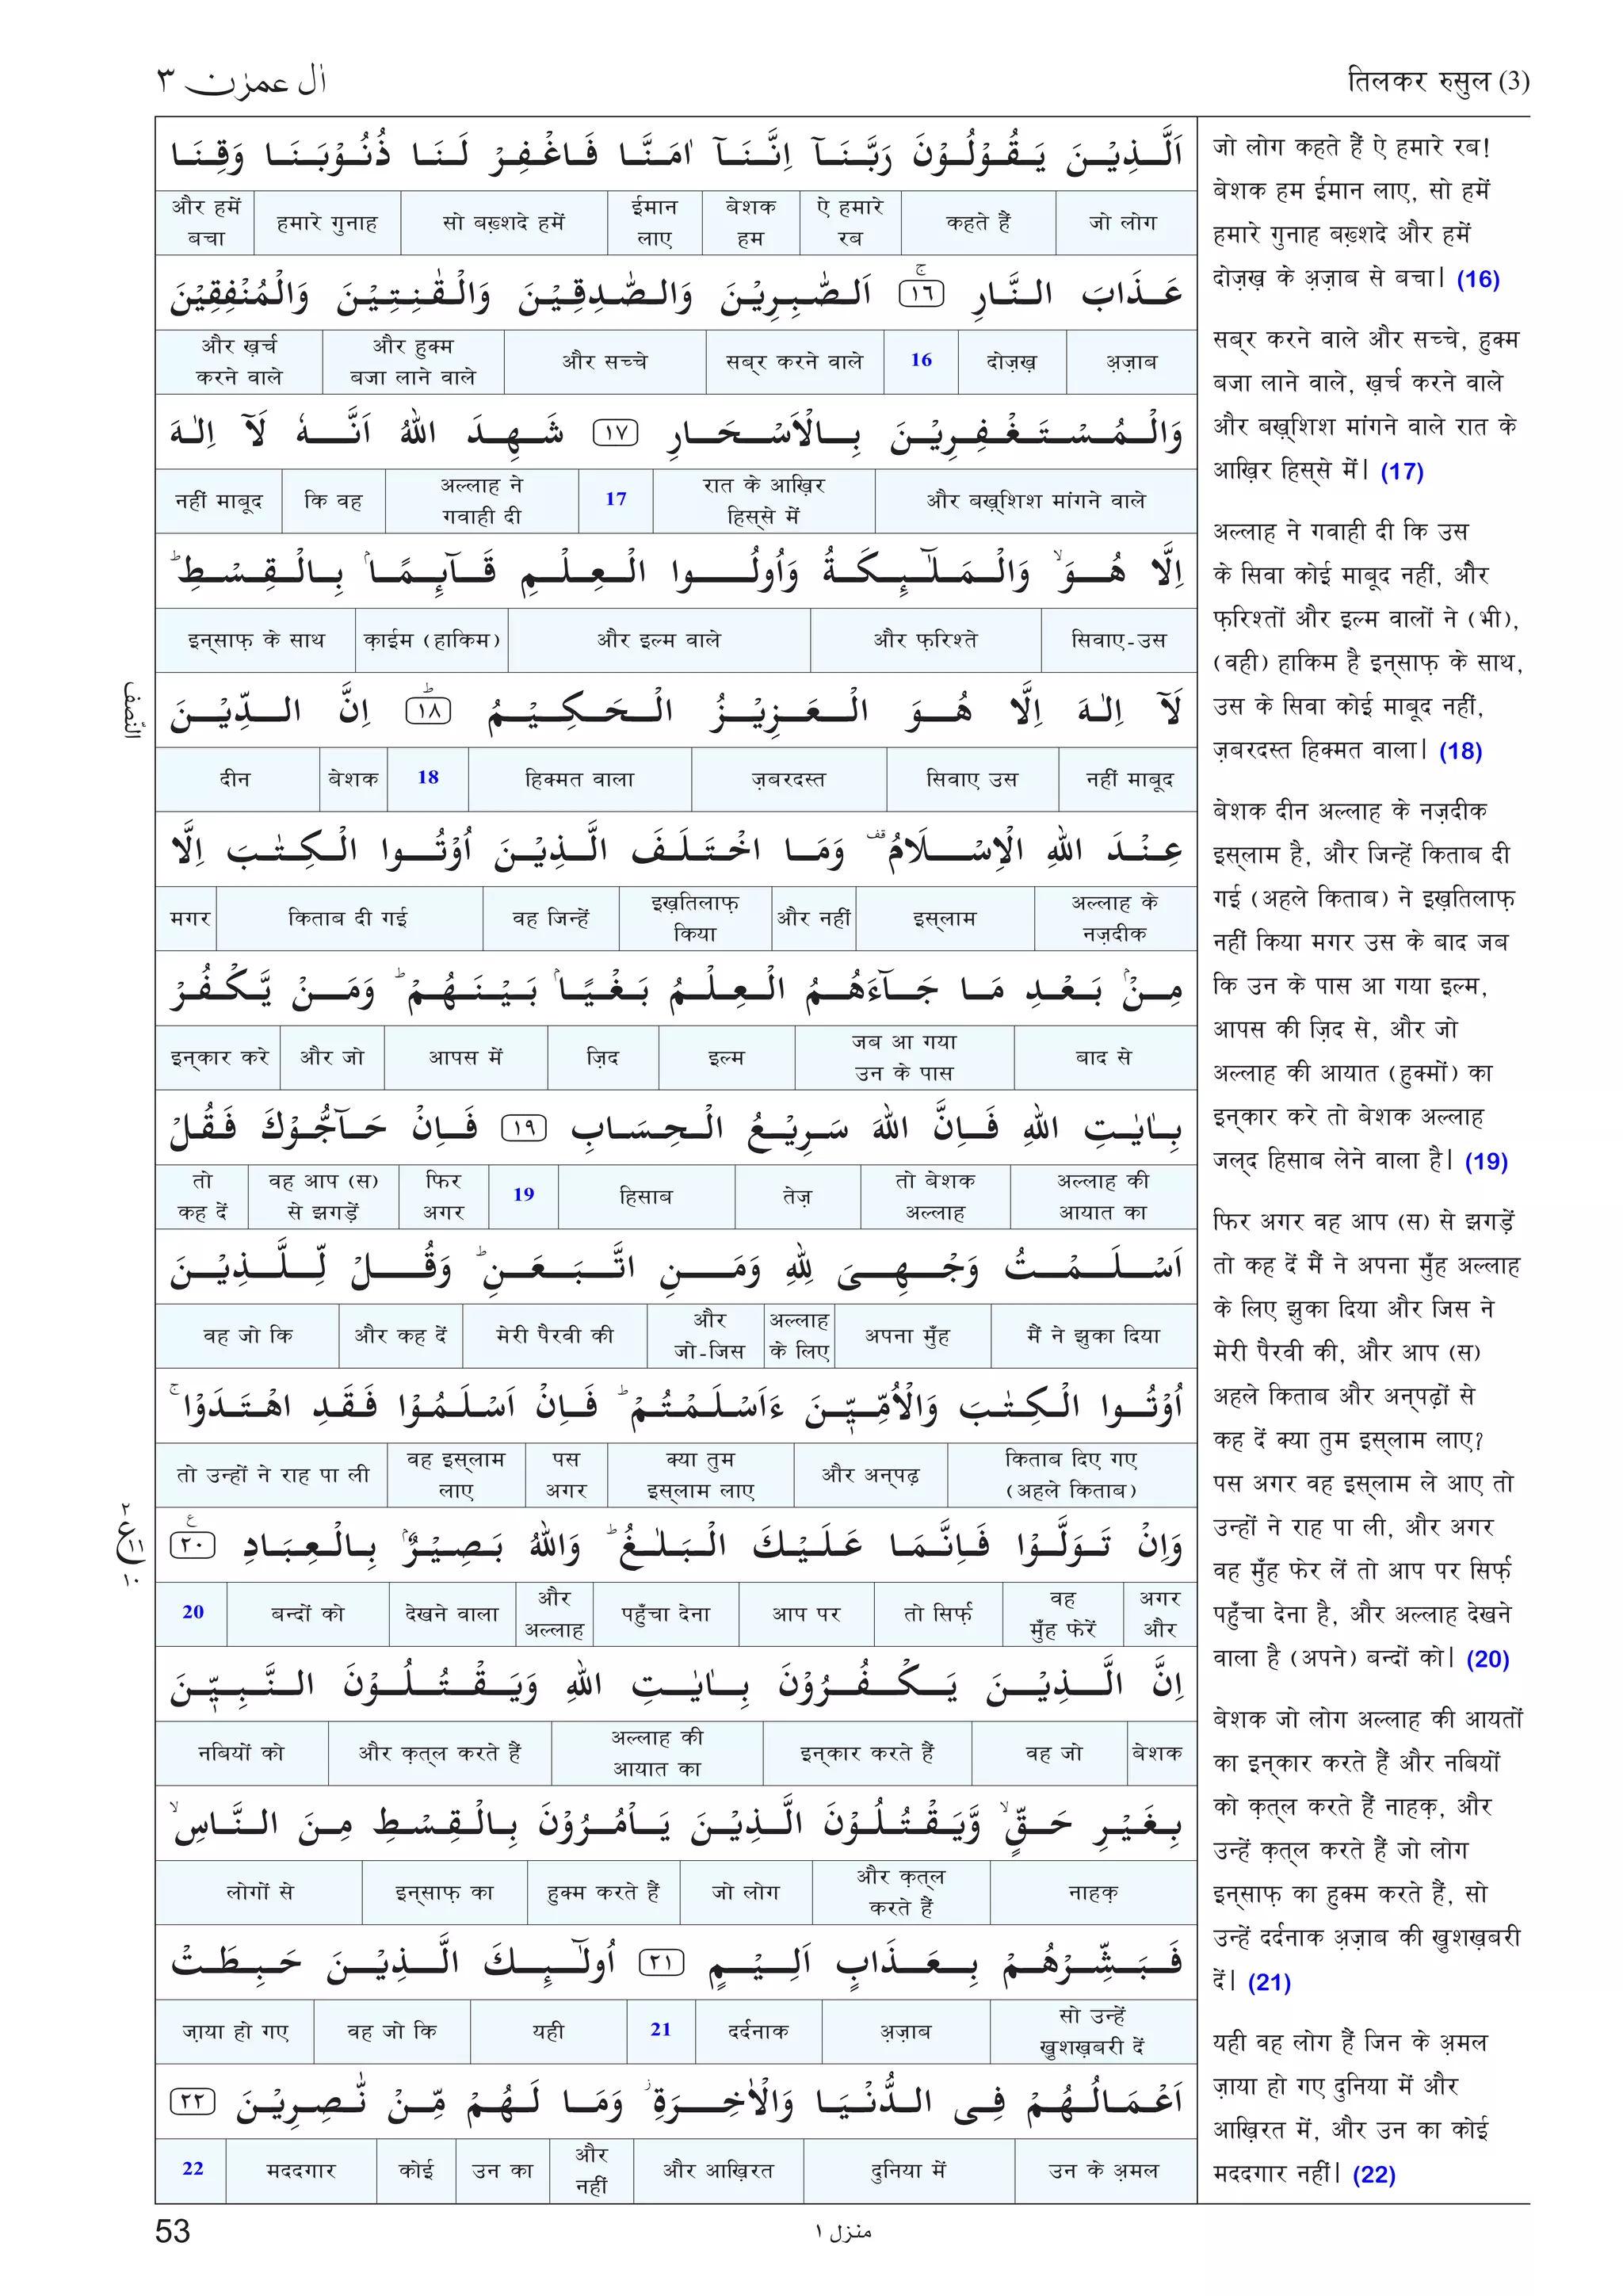 اٰل عمرٰن ۳
तिलकर रुसुल (3)
اَلَّذِیْنَ یَقُوْلُوْنَ رَبَّنَاۤ اِنَّنَاۤ اٰمَنَّا فَاغْفِرْ لَنَا ذُنُوْبَنَا وَقِنَا
जो लोग | कहते हैं | ऐ हमारे रब | बेशक हम | ईमान लाए | सो बख़्शदे हमें | हमारे गुनाह | और हमें बचा
عَذَابَ النَّارِ ﴿۱۶﴾ۚ اَلصّٰبِرِیْنَ وَالصّٰدِقِیْنَ وَالْقٰنِتِیْنَ وَالْمُنْفِقِیْنَ
अ़ज़ाब | दोज़ख़ | 16 | सब्र करने वाले | और सच्चे | और हुक्म बजा लाने वाले | और ख़र्च करने वाले
وَالْمُسْتَغْفِرِیْنَ بِالْاَسْحَارِ ﴿۱۷﴾ شَهِدَ اللّٰهُ اَنَّهٗ لَاۤ اِلٰهَ
और बख़्शिश मांगने वाले | रात के आख़िर हिस्से में | 17 | अल्लाह ने गवाही दी | कि वह | नहीं माबूद
اِلَّا هُوَ ۙ وَالْمَلٰٓىِٕكَةُ وَاُولُوا الْعِلْمِ قَآىِٕمًۢا بِالْقِسْطِ ؕ
सिवाए-उस | और फ़रिश्ते | और इल्म वाले | क़ाईम (हाकिम) | इन्साफ़ के साथ
لَاۤ اِلٰهَ اِلَّا هُوَ الْعَزِیْزُ الْحَكِیْمُ ﴿۱۸﴾ؕ اِنَّ الدِّیْنَ
नहीं माबूद | सिवाए उस | ज़बरदस्त | हिक्मत वाला | 18 | बेशक | दीन
عِنْدَ اللّٰهِ الْاِسْلَامُ ۫ وَمَا اخْتَلَفَ الَّذِیْنَ اُوْتُوا الْكِتٰبَ اِلَّا
अल्लाह के नज़दीक | इस्लाम | और नहीं | इख़तिलाफ़ किया | वह जिन्हें | किताब दी गई | मगर
مِنْۢ بَعْدِ مَا جَآءَهُمُ الْعِلْمُ بَغْیًۢا بَیْنَهُمْ ؕ وَمَنْ یَّكْفُرْ
बाद से | जब आ गया उन के पास | इल्म | ज़िद | आपस में | और जो | इन्कार करे
بِاٰیٰتِ اللّٰهِ فَاِنَّ اللّٰهَ سَرِیْعُ الْحِسَابِ ﴿۱۹﴾ فَاِنْ حَآجُّوْكَ فَقُلْ
अल्लाह की आयात का | तो बेशक अल्लाह | तेज़ | हिसाब | 19 | फिर अगर | वह आप (स) से झगड़ें | तो कह दें
اَسْلَمْتُ وَجْهِیَ لِلّٰهِ وَمَنِ اتَّبَعَنِ ؕ وَقُلْ لِّلَّذِیْنَ
मैं ने झुका दिया | अपना मुँह | अल्लाह के लिए | और जो-जिस | मेरी पैरवी की | और कह दें | वह जो कि
اُوْتُوا الْكِتٰبَ وَالْاُمِّیّٖنَ ءَاَسْلَمْتُمْ ؕ فَاِنْ اَسْلَمُوْا فَقَدِ اهْتَدَوْا ۚ
किताब दिए गए (अहले किताब) | और अन्पढ़ | क्या तुम इस्लाम लाए | पस अगर | वह इस्लाम लाए | तो उन्हों ने राह पा ली
وَاِنْ تَوَلَّوْا فَاِنَّمَا عَلَیْكَ الْبَلٰغُ ؕ وَاللّٰهُ بَصِیْرٌۢ بِالْعِبَادِ ﴿۲۰﴾ع
अगर और | वह मुँह फेरें | तो सिर्फ़ | आप पर | पहुँचा देना | और अल्लाह | देखने वाला | बन्दों को | 20
اِنَّ الَّذِیْنَ یَكْفُرُوْنَ بِاٰیٰتِ اللّٰهِ وَیَقْتُلُوْنَ النَّبِیّٖنَ
बेशक | वह जो | इन्कार करते हैं | अल्लाह की आयात का | और क़त्ल करते हैं | नबियों को
بِغَیْرِ حَقٍّ ۙ وَّیَقْتُلُوْنَ الَّذِیْنَ یَاْمُرُوْنَ بِالْقِسْطِ مِنَ النَّاسِ ۙ
नाहक़ | और क़त्ल करते हैं | जो लोग | हुक्म करते हैं | इन्साफ़ का | लोगों से
فَبَشِّرْهُمْ بِعَذَابٍ اَلِیْمٍ ﴿۲۱﴾ اُولٰٓىِٕكَ الَّذِیْنَ حَبِطَتْ
सो उन्हें खुशख़बरी दें | अ़ज़ाब | दर्दनाक | 21 | यही | वह जो कि | ज़ाया हो गए
اَعْمَالُهُمْ فِی الدُّنْیَا وَالْاٰخِرَةِ ۫ وَمَا لَهُمْ مِّنْ نّٰصِرِیْنَ ﴿۲۲﴾
उन के अ़मल | दुनिया में | और आख़िरत | और नहीं | उन का | कोई | मददगार | 22
जो लोग कहते हैं ऐ हमारे रब!
बेशक हम ईमान लाए, सो हमें
हमारे गुनाह बख़्शदे और हमें
दोज़ख़ के अ़ज़ाब से बचा। (16)
सब्र करने वाले और सच्चे, हुक्म
बजा लाने वाले, ख़र्च करने वाले
और बख़्शिश मांगने वाले रात के
आख़िर हिस्से में। (17)
अल्लाह ने गवाही दी कि उस
के सिवा कोई माबूद नहीं, और
फ़रिश्तों और इल्म वालों ने (भी),
(वही) हाकिम है इन्साफ़ के साथ,
उस के सिवा कोई माबूद नहीं,
ज़बरदस्त हिक्मत वाला। (18)
बेशक दीन अल्लाह के नज़दीक
इस्लाम है, और जिन्हें किताब दी
गई (अहले किताब) ने इख़तिलाफ़
नहीं किया मगर उस के बाद जब
कि उन के पास आ गया इल्म,
आपस की ज़िद से, और जो
अल्लाह की आयात (हुक्मों) का
इन्कार करे तो बेशक अल्लाह
जल्द हिसाब लेने वाला है। (19)
फिर अगर वह आप (स) से झगड़ें
तो कह दें मैं ने अपना मुँह अल्लाह
के लिए झुका दिया और जिस ने
मेरी पैरवी की, और आप (स)
अहले किताब और अन्पढ़ों से
कह दें क्या तुम इस्लाम लाए?
पस अगर वह इस्लाम ले आए तो
उन्हों ने राह पा ली, और अगर
वह मुँह फेर लें तो आप पर सिर्फ़
पहुँचा देना है, और अल्लाह देखने
वाला है (अपने) बन्दों को। (20)
बेशक जो लोग अल्लाह की आयतों
का इन्कार करते हैं और नबियों
को क़त्ल करते हैं नाहक़, और
उन्हें क़त्ल करते हैं जो लोग
इन्साफ़ का हुक्म करते हैं, सो
उन्हें दर्दनाक अ़ज़ाब की खुशख़बरी
दें। (21)
यही वह लोग हैं जिन के अ़मल
ज़ाया हो गए दुनिया में और
आख़िरत में, और उन का कोई
मददगार नहीं। (22)
النّصف
۲
ع ۱۱
۱۰
53
منزل ۱